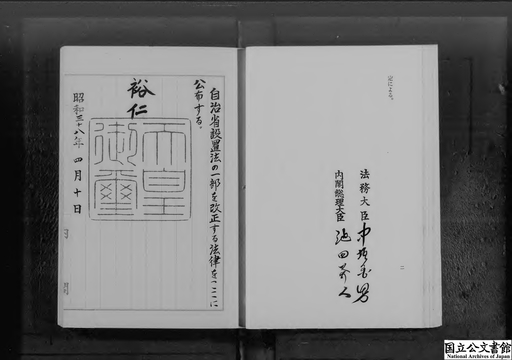 定による。
法務大臣 中垣國男
内閣総理大臣 池田勇人
自治省設置法の一部を改正する法律をここに
公布する。
裕仁
天皇御璽
昭和三十八年四月十日
国立公文書館
National Archives of Japan